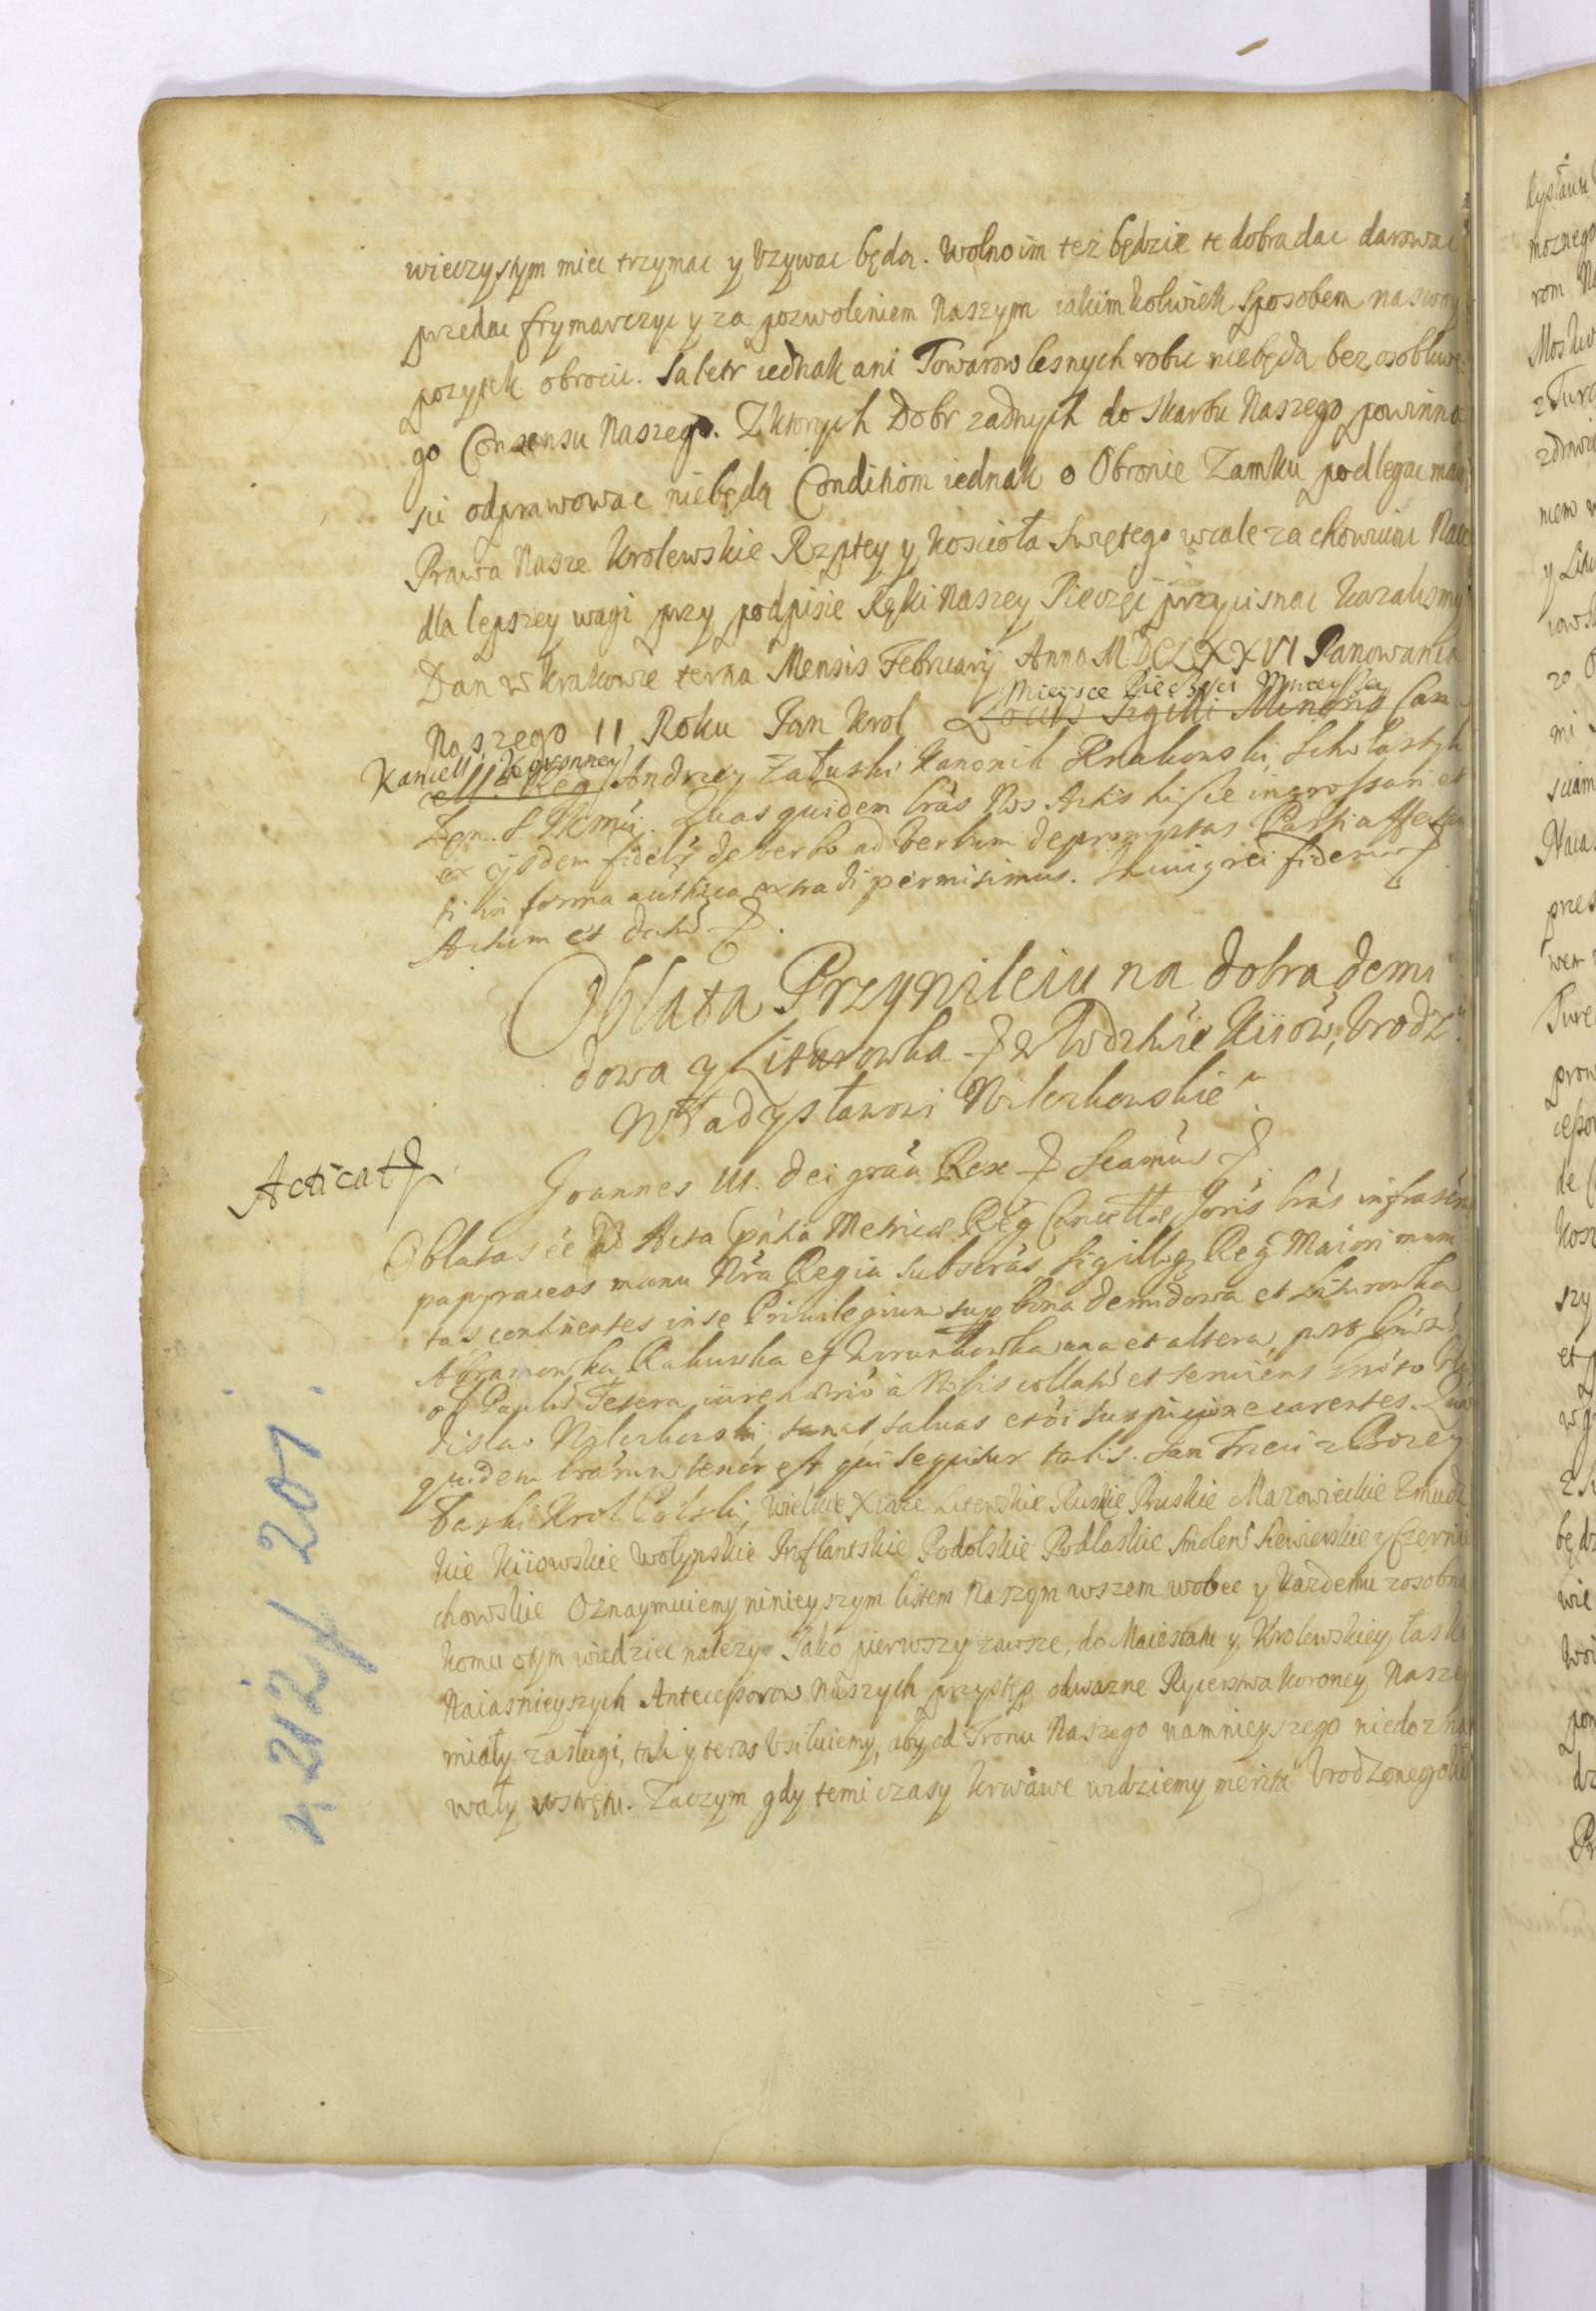 wieczystym miec trzymac y Uzywac będą. Wolno im tez będzie te dobra dac darowac
przedac frymarczyc y za pozwoleniem Naszym iakimkolwiek sposobem na swoy
pozytek obrocic. Saletr iednak ani Towarow lesnych robic niebędą bez osobliwe
go Consensu Naszego. Z ktorych Dobr zadnych do skarbu Naszego powinno
sci odprawowac niebędą Conditiom iednak o Obronie Zamku podlegac maią
Prawa Nasze Krolewskie Rzptey y Koscioła Swiętego wcale zachowuiąc Na co
dla lepszey wagi przy podpisie Ręki Naszey Pieczęc przycisnac kazalismy
Dan w Krakowie terna Mensis Februarij Anno MDCLXXVI Panowania
Miejsce Pieczęci Mnieyszey
Naszego II Roku Jan Krol Locus Sigilli Minoris Can
Kancell: Koronney
cell. Reg Andrzey Załuski Kanonik Krakowski, Scholastyk
Quas quidem lrãs Nos Actis hisce ingrossari et
ex ijsdem fidelr de verbo ad verbum depromptas Parti affectan
ti in forma autñica extradi permisimus. In cuius rei fidem
Actum et datũ
Oblata Przywileiu na dobra demi
dowa y Liturowka w Wdztwie Kiiow, Urodz.
Władysławowi Wilczkowskie
Acticat
Joannes III. Dei grãa Rex Scamus
Oblatas ee ad Acta pñtia Metrices Reg Cancellae Joris lrãs infrasc
papyraceas manu Nrã Regia subscras sigilloq Reg Maiori mum
tas continentes in se Privilegium super bona demidowa et Liturowka
Abramowka Rakuwka et Worunkowka una et altera, post
ol Pauli Tetera iure à Nobis collatũ et serviens Grõso Vla
dislao Wilczkowski sanas, salvas et oi suspicione carentes. Quar
quidem lrãrum tenor est qui sequitur talis. Jan Trzeci z Bozey
łaski Krol Polski, Wielkie Xiąze Litewskie Ruskie Pruskie Mazowieckie Zmudz
kie Kiiowskie Wołynskie Inflantskie Podolskie Podlaskie Smolen Siewierskie y Czernie
chowskie Oznaymuiemy ninieyszym listem Naszym wszem wobec y kazdemu zosobna
komu o tym wiedziec nalezy. Jako pierwszy zawsze, do Maiestatu y Krolewskiey łaski
Naiasnieyszych Antecessorow Naszych przystęp odwazne Rycerstwa Koroney Naszey
miały zasługi, tak y teras Usiłuiemy, aby od Tronu Naszego namnieyszego niedozna
wały wstrętu. Zaczym gdy temi czasy krwawe widziemy merita Urodzonego Wła